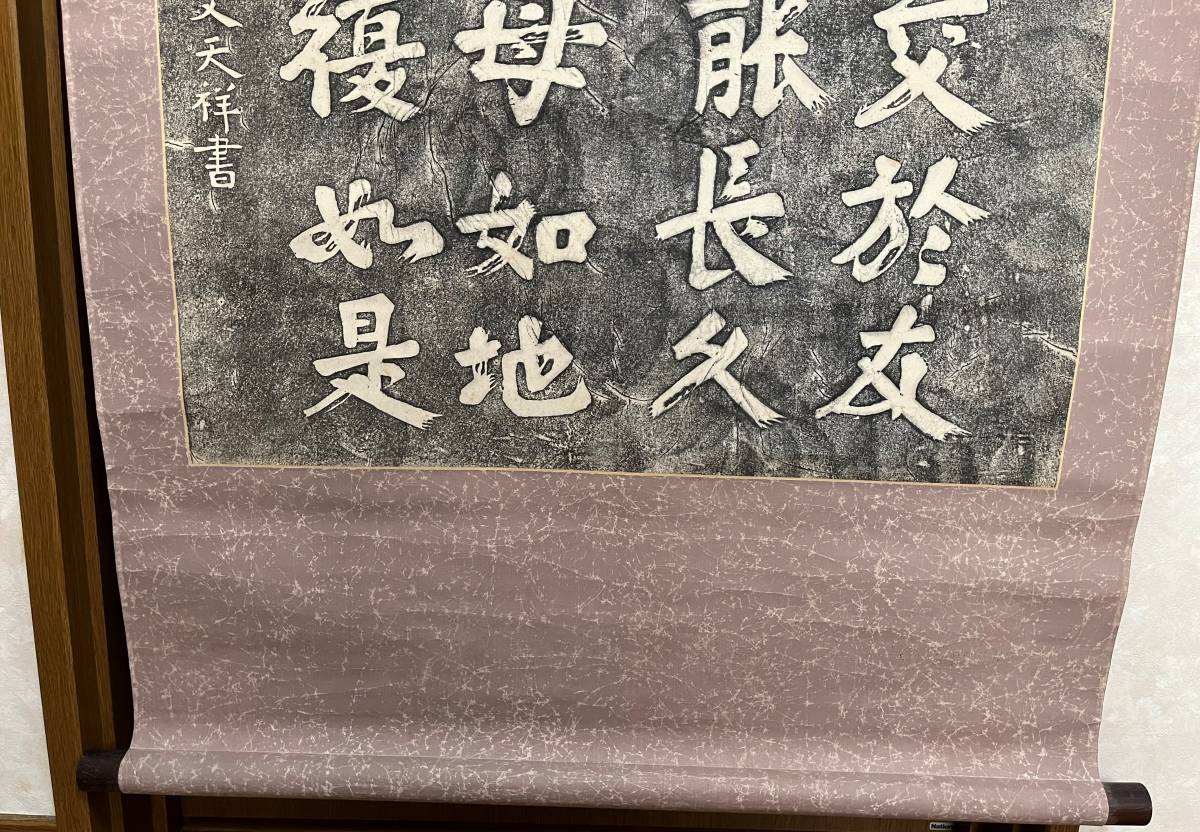 交於友
能長久
母如地
復如是
文天祥書